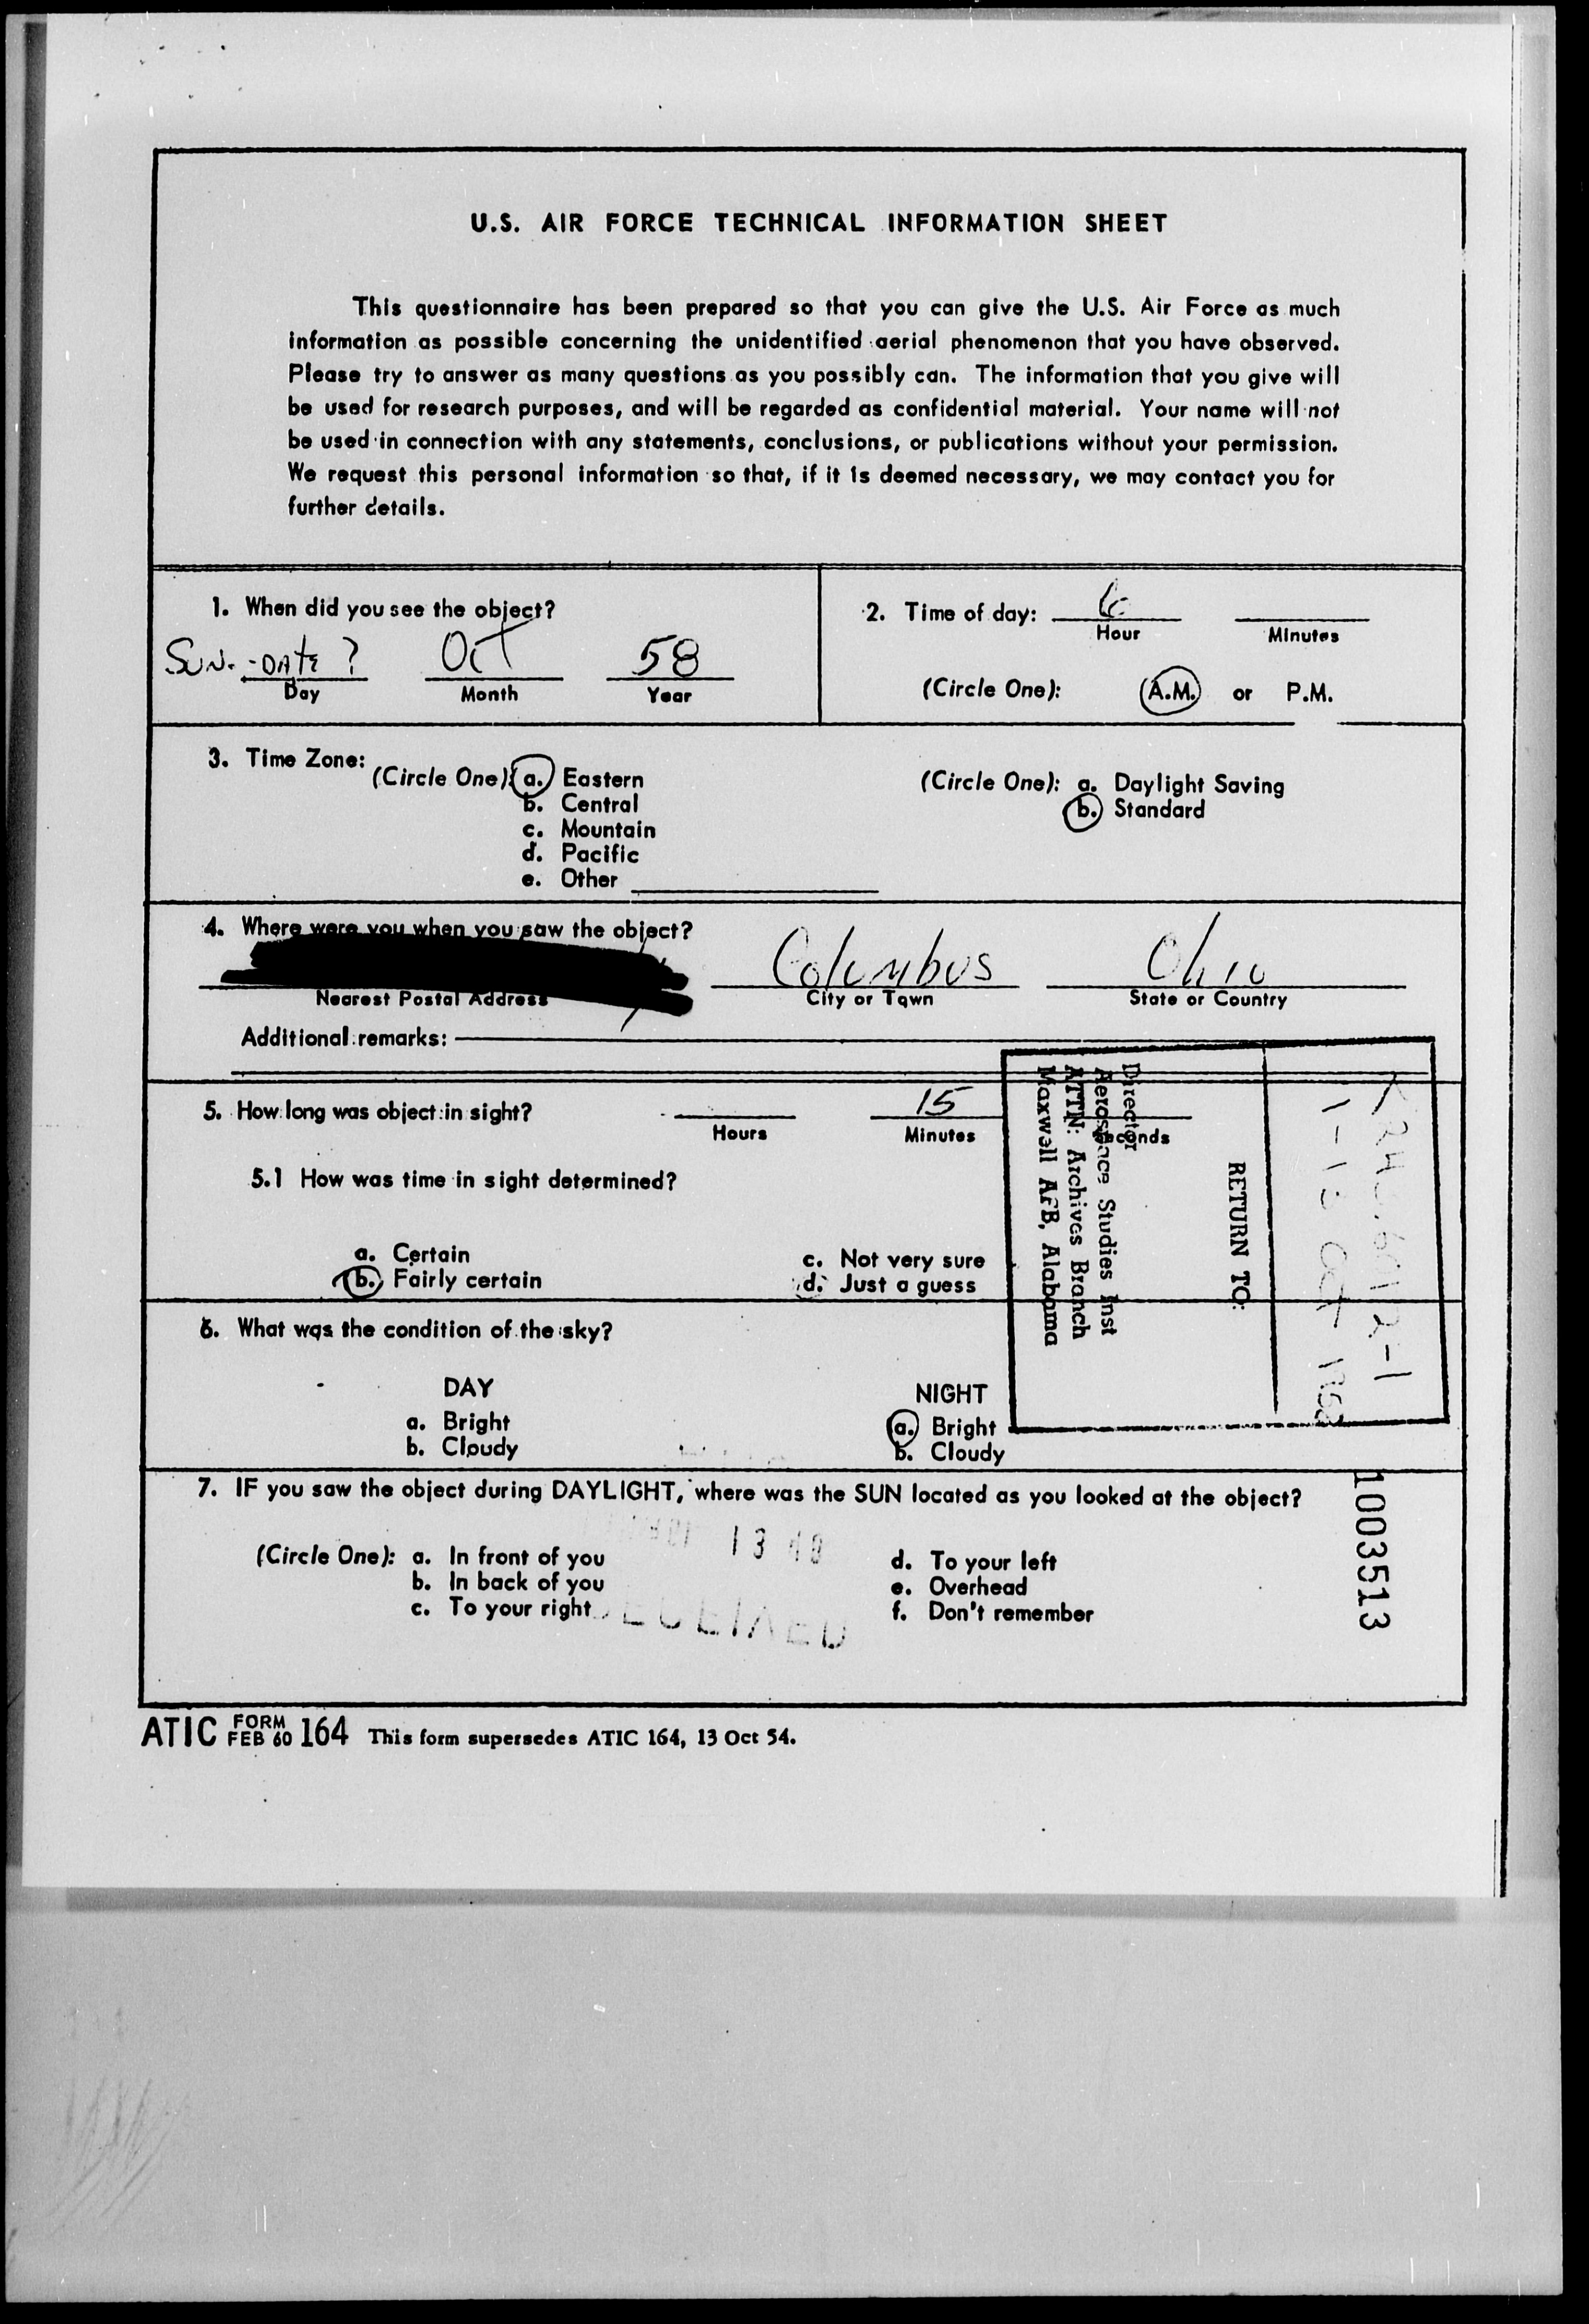 U.S. AIR FORCE TECHNICAL INFORMATION SHEET
This questionnaire has been prepared so that you can give the U.S. Air Force as much
information as possible concerning the unidentified aerial phenomenon that you have observed.
Please try to answer as many questions as you possibly can. The information that you give will
be used for research purposes, and will be regarded as confidential material. Your name will not
be used in connection with any statements, conclusions, or publications without your permission.
We request this personal information so that, if it is deemed necessary, we may contact you for
further details.
1. When did you see the object?
SUN. - DATE ? Oct 58
Day Month Year
2. Time of day: 6
Hour Minutes
(Circle One): A.M. or P.M.
3. Time Zone:
(Circle One): a. Eastern
b. Central
c. Mountain
d. Pacific
e. Other
(Circle One): a. Daylight Saving
b. Standard
4. Where were you when you saw the object?
Columbus Ohio
Nearest Postal Address City or Town State or Country
Additional remarks:
5. How long was object in sight? 15
Hours Minutes Seconds
5.1 How was time in sight determined?
a. Certain
b. Fairly certain
c. Not very sure
d. Just a guess
RETURN TO:
Director
Aerospace Studies Inst
ATTN: Archives Branch
Maxwell AFB, Alabama
6. What was the condition of the sky?
DAY
a. Bright
b. Cloudy
NIGHT
a. Bright
b. Cloudy
7. IF you saw the object during DAYLIGHT, where was the SUN located as you looked at the object?
(Circle One): a. In front of you
b. In back of you
c. To your right
d. To your left
e. Overhead
f. Don't remember
RECEIVED
1003513
ATIC FORM FEB 60 164 This form supersedes ATIC 164, 13 Oct 54.